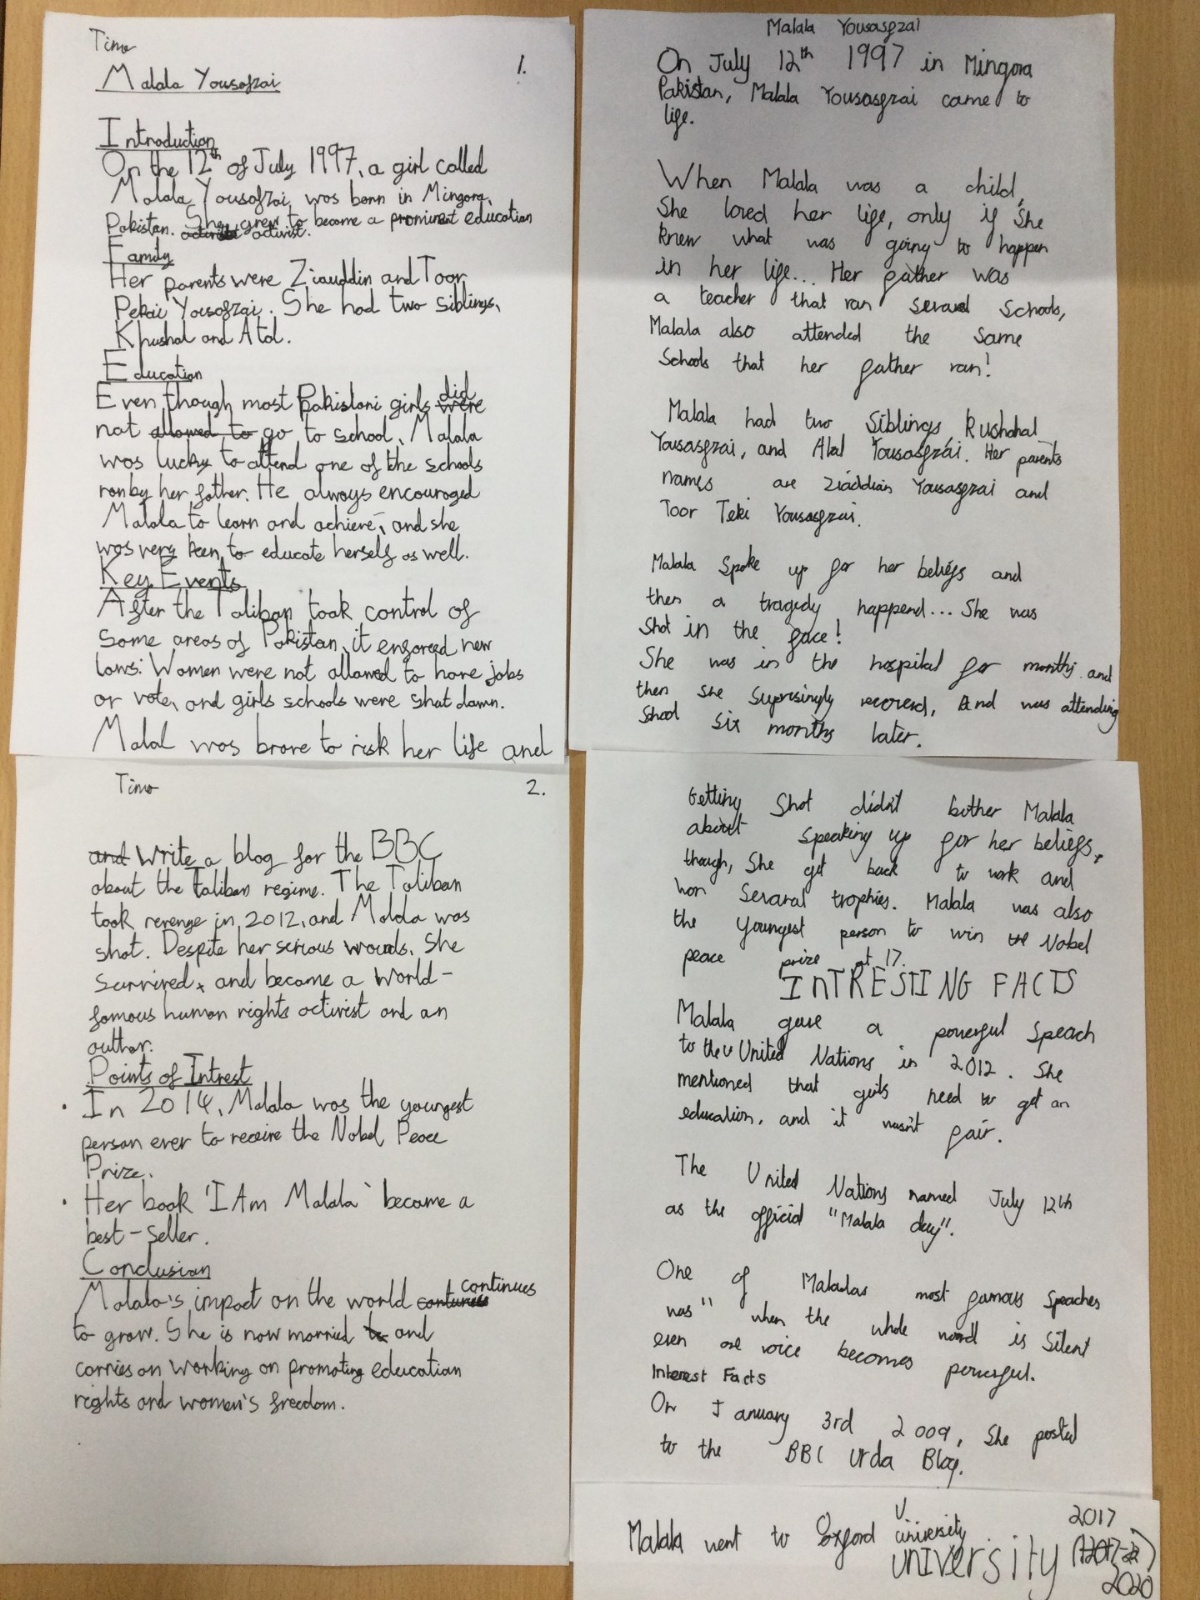 Timo
Malala Yousofzai
1.
Introduction
On the 12th of July 1997, a girl called
Malala Yousofzai, was born in Mingora,
Pakistan. She grew to become a prominent education
activist.
Family
Her parents were Ziauddin and Toor
Pekai Yousofzai. She had two siblings,
Khushal and Atal.
Education
Even though most Pakistani girls were did
not allowed to go to school, Malala
was lucky to attend one of the schools
ran by her father. He always encouraged
Malala to learn and achieve, and she
was very keen to educate herself as well.
Key Events
After the Taliban took control of
some areas of Pakistan, it enforced new
laws: Women were not allowed to have jobs
or vote, and girls schools were shut down.
Malal was brave to risk her life and
Timo
2.
and write a blog for the BBC
about the Taliban regime. The Taliban
took revenge in 2012, and Malala was
shot. Despite her serious wounds, She
survived, and became a world-
famous human rights activist and an
author.
Points of Intrest
• In 2014, Malala was the youngest
person ever to receive the Nobel Peace
Prize.
• Her book 'I Am Malala' became a
best-seller.
Conclusion
Malala's impact on the world continues
to grow. She is now married and
carries on working on promoting education
rights and women's freedom.
Malala Yousasfzai
On July 12th 1997 in Mingora
Pakistan, Malala Yousasfzai came to
life.
When Malala was a child,
She loved her life, only if She
knew what was going to happen
in her life... Her father was
a teacher that ran several schools,
Malala also attended the same
Schools that her father ran!
Malala had two Siblings Kushahal
Yousasfzai, and Atal Yousasfzai. Her parents
names are Ziaddian Yousasfzai and
Toor Teki Yousasfzai.
Malala Spoke up for her beliefs and
then a tragedy happend... She was
Shot in the face!
She was in the hospital for months and
then she Suprisingly recoverd, And was attending
School six months later.
Getting Shot didn't bother Malala
about speaking up for her beliefs,
though, She got back to work and
won Several trophies. Malala was also
the Youngest person to win the Nobel
peace prize at 17.
INTRESTING FACTS
Malala gave a powerful Speach
to the United Nations in 2012. She
mentioned that girls need to get an
education, and it wasn't fair.
The United Nations named July 12th
as the official "Malala day".
One of Malalas most famous Speaches
was" when the whole world is Silent
even one voice becomes powerful.
Interest Facts
On January 3rd 2009, She posted
to the BBC Urda Blog.
Malala went to Oxford university
university
2017
2020